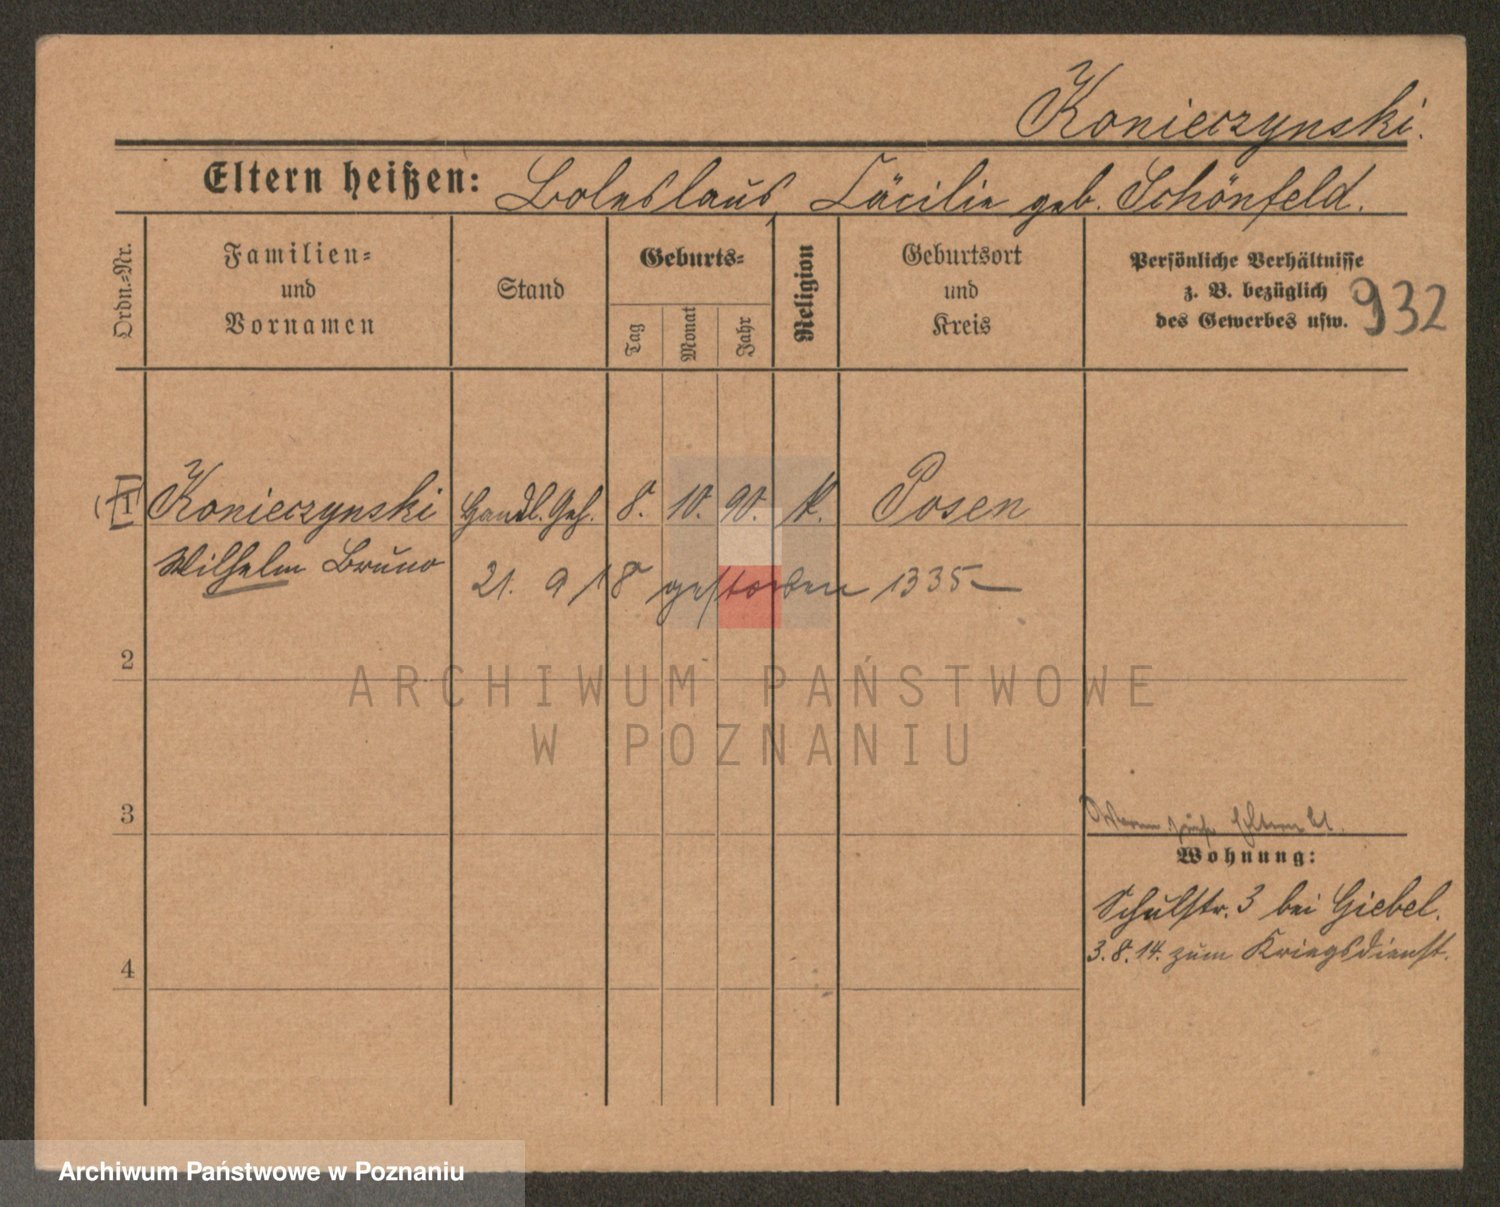 Konieczynski.
Eltern heißen: Boleslaus, Cäcilie geb. Schönfeld.
Ordn.-Nr.
Familien- und Vornamen
Stand
Geburts-
Tag
Monat
Jahr
Religion
Geburtsort und Kreis
Persönliche Verhältnisse
z. B. bezüglich
des Gewerbes usw.
932
Konieczynski Handl. Geh. 8. 10. 90. k. Posen
Wilhelm Bruno
21. 9 18 gestorben 1335
2
ARCHIWUM PAŃSTWOWE
W POZNANIU
3
Wohnung:
Schulstr. 3 bei Giebel.
3. 8. 14. zum Kriegsdienst.
4
Archiwum Państwowe w Poznaniu